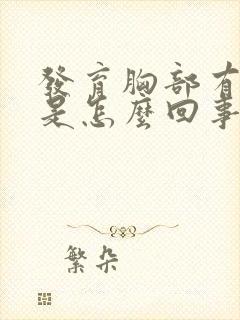 發育胸部有
是怎麼回事
繁朵